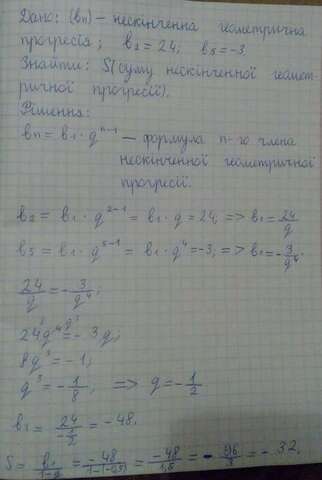 Дано: (bn) – нескінченна геометрична
прогресія; b2 = 24, b5 = -3.
Знайти: S (суму нескінченної геомет-
ричної прогресії).
Рішення:
bn = b1 · q^(n-1) – формула n-го члена
нескінченної геометричної
прогресії.
b2 = b1 · q^(2-1) = b1 · q = 24, => b1 = 24/q
b5 = b1 · q^(5-1) = b1 · q^4 = -3, => b1 = -3/q^4.
24/q = -3/q^4;
24q^4 = -3q;
8q^3 = -1;
q^3 = -1/8, => q = -1/2
b1 = 24/(-1/2) = -48.
S = b1/(1-q) = -48/(1-(-0,5)) = -48/1,5 = -96/3 = -32.